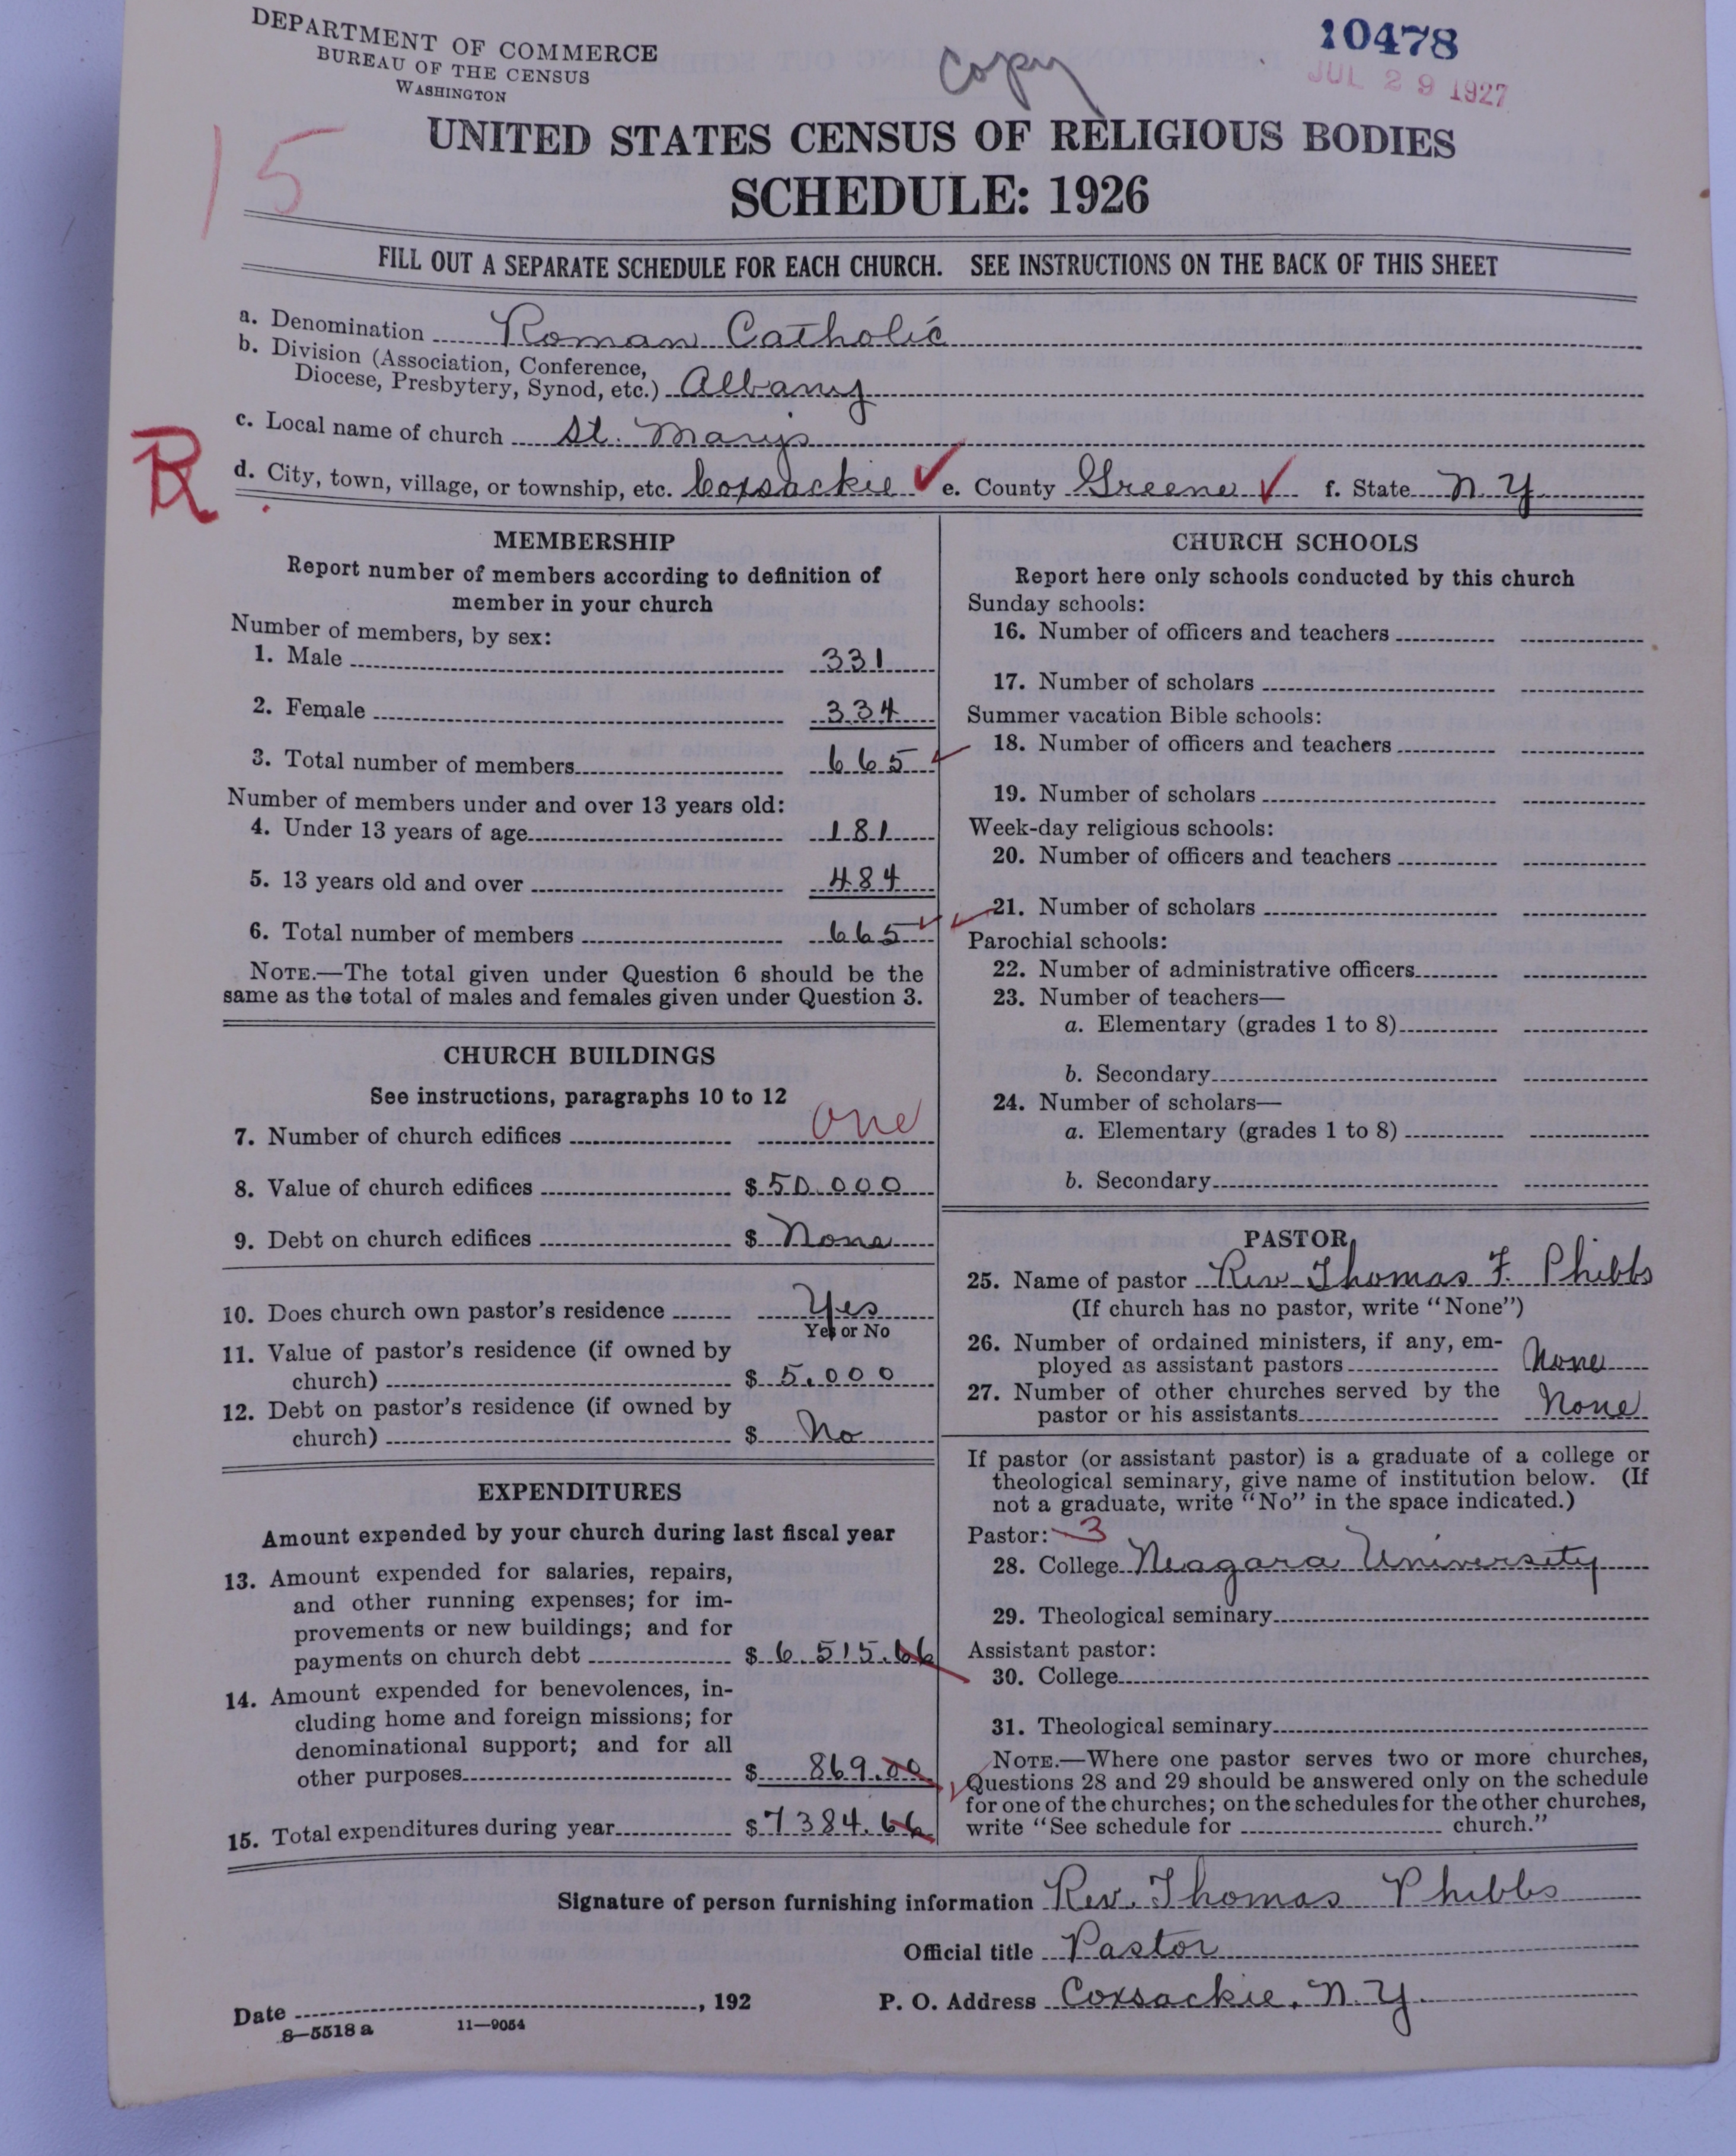 DEPARTMENT OF COMMERCE
BUREAU OF THE CENSUS
WASHINGTON
Copy
10478
JUL 29 1927
15
UNITED STATES CENSUS OF RELIGIOUS BODIES
SCHEDULE: 1926
FILL OUT A SEPARATE SCHEDULE FOR EACH CHURCH. SEE INSTRUCTIONS ON THE BACK OF THIS SHEET
a. Denomination Roman Catholic
b. Division (Association, Conference,
Diocese, Presbytery, Synod, etc.) Albany
c. Local name of church St. Mary's
R
d. City, town, village, or township, etc. Coxsackie e. County Greene f. State N.Y.
MEMBERSHIP
Report number of members according to definition of
member in your church
Number of members, by sex:
1. Male 331
2. Female 334
3. Total number of members 665
Number of members under and over 13 years old:
4. Under 13 years of age 181
5. 13 years old and over 484
6. Total number of members 665
NOTE.—The total given under Question 6 should be the
same as the total of males and females given under Question 3.
CHURCH BUILDINGS
See instructions, paragraphs 10 to 12
7. Number of church edifices one
8. Value of church edifices $ 50.000
9. Debt on church edifices $ None
10. Does church own pastor's residence Yes
Yes or No
11. Value of pastor's residence (if owned by
church) $ 5.000
12. Debt on pastor's residence (if owned by
church) $ No
EXPENDITURES
Amount expended by your church during last fiscal year
13. Amount expended for salaries, repairs,
and other running expenses; for im-
provements or new buildings; and for
payments on church debt $ 6.515.66
14. Amount expended for benevolences, in-
cluding home and foreign missions; for
denominational support; and for all
other purposes $ 869.00
15. Total expenditures during year $ 7384.66
CHURCH SCHOOLS
Report here only schools conducted by this church
Sunday schools:
16. Number of officers and teachers
17. Number of scholars
Summer vacation Bible schools:
18. Number of officers and teachers
19. Number of scholars
Week-day religious schools:
20. Number of officers and teachers
21. Number of scholars
Parochial schools:
22. Number of administrative officers
23. Number of teachers—
a. Elementary (grades 1 to 8)
b. Secondary
24. Number of scholars—
a. Elementary (grades 1 to 8)
b. Secondary
PASTOR
25. Name of pastor Rev. Thomas F. Phibbs
(If church has no pastor, write "None")
26. Number of ordained ministers, if any, em-
ployed as assistant pastors None
27. Number of other churches served by the
pastor or his assistants None
If pastor (or assistant pastor) is a graduate of a college or
theological seminary, give name of institution below. (If
not a graduate, write "No" in the space indicated.)
Pastor: 3
28. College Niagara University
29. Theological seminary
Assistant pastor:
30. College
31. Theological seminary
NOTE.—Where one pastor serves two or more churches,
Questions 28 and 29 should be answered only on the schedule
for one of the churches; on the schedules for the other churches,
write "See schedule for church."
Signature of person furnishing information Rev. Thomas Phibbs
Official title Pastor
Date , 192 P. O. Address Coxsackie, N.Y.
8—5518 a 11—9054